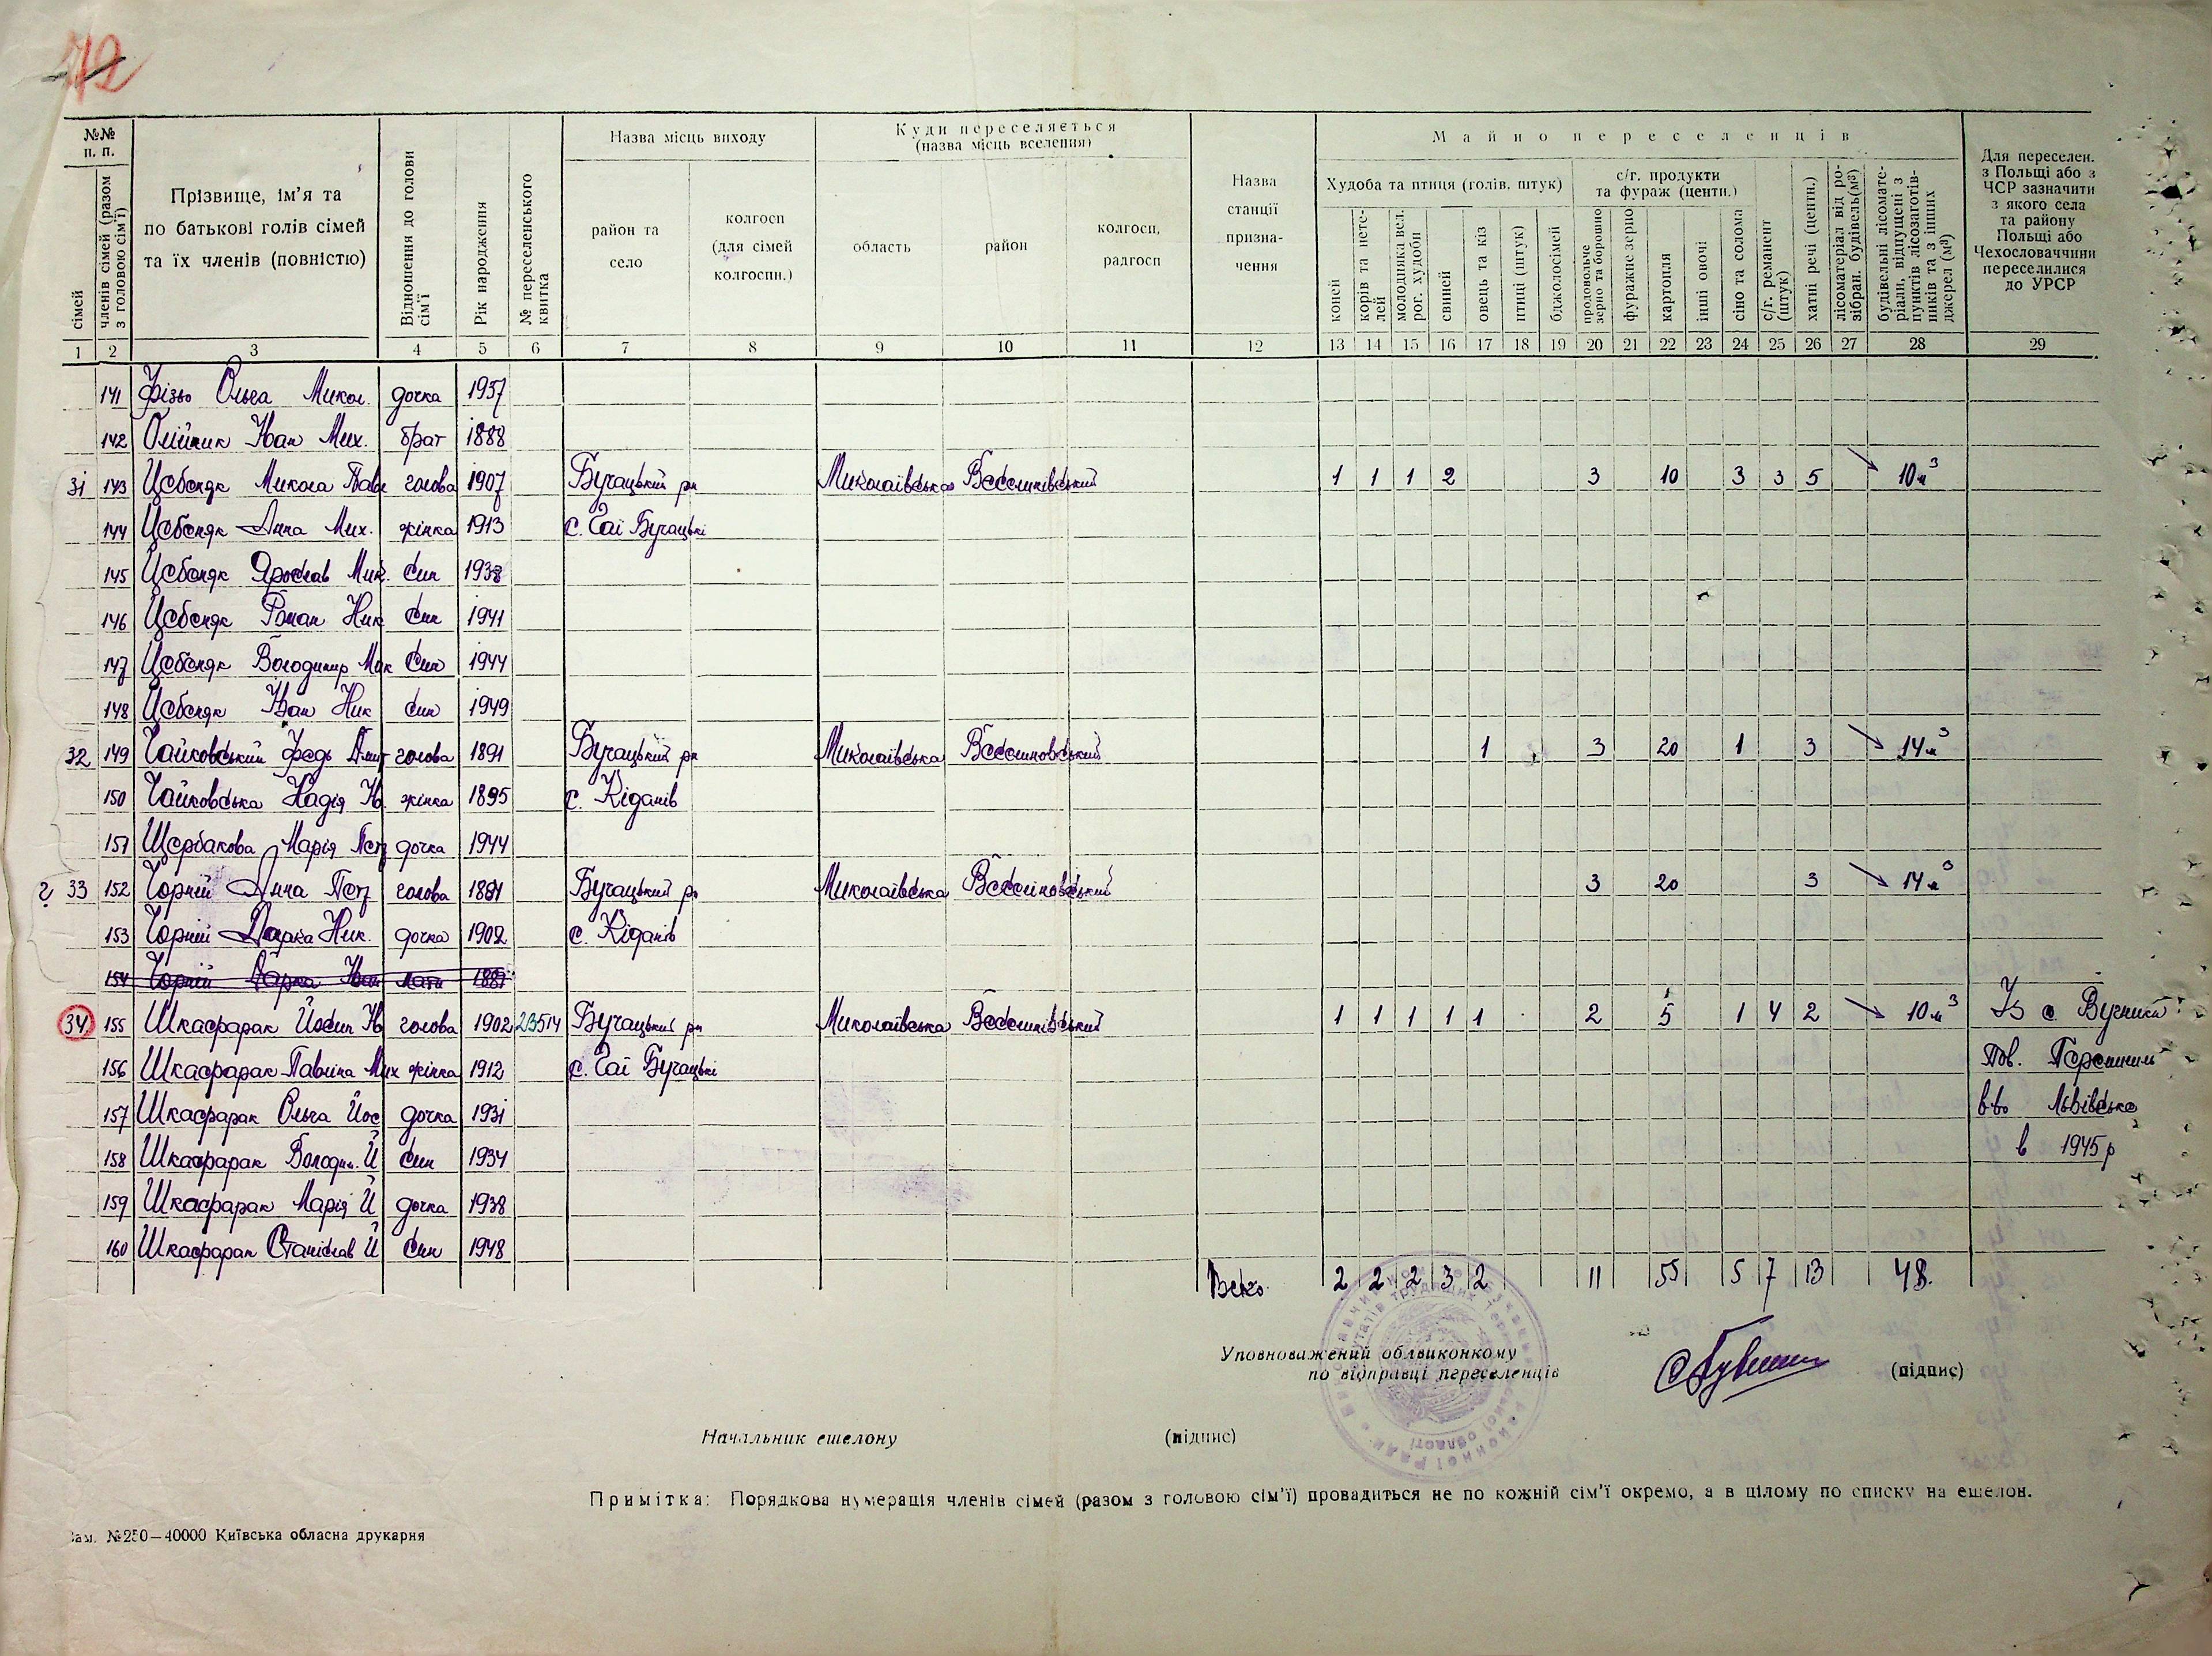 72
№№ п. п.
сімей
членів сімей (разом з головою сім'ї)
Прізвище, ім'я та по батькові голів сімей та їх членів (повністю)
Відношення до голови сім'ї
Рік народження
№ переселенського квитка
Назва місць виходу
район та село
колгосп (для сімей колгоспн.)
Куди переселяється (назва місць вселення)
область
район
колгосп, радгосп
Назва станції призна-чення
Майно переселенців
Худоба та птиця (голів, штук)
коней
корів та нете-лей
молодняка вел. рог. худоби
свиней
овець та кіз
птиці (штук)
бджолосімей
с/г. продукти та фураж (центн.)
продовольче зерно та борошно
фуражне зерно
картопля
інші овочі
сіно та солома
с/г. реманент (штук)
хатні речі (центн.)
лісоматеріал від ро-зібран. будівель(м³)
будівельні лісомате-ріали, відпущені з пунктів лісозаготів-ників та з інших джерел (м³)
Для переселен. з Польщі або з ЧСР зазначити з якого села та району Польщі або Чехословаччини переселилися до УРСР
1 2 3 4 5 6 7 8 9 10 11 12 13 14 15 16 17 18 19 20 21 22 23 24 25 26 27 28 29
141 Фізьо Ольга Микол. дочка 1937
142 Олійник Іван Мих. брат 1888
31 143 Цебеняк Микола Павл голова 1907 Бучацький рн Миколаївська Веселинівський 1 1 1 2 3 10 3 3 5 10 м³
144 Цебеняк Анна Мих. жінка 1913 с. Гаї Бучацькі
145 Цебеняк Ярослав Мик. син 1938
146 Цебеняк Роман Ник син 1941
147 Цебеняк Володимир Мик син 1944
148 Цебеняк Іван Ник син 1949
32 149 Чайковський Федь Дмит голова 1891 Бучацький рн Миколаївська Веселиновський 1 3 20 1 3 14 м³
150 Чайковська Надія Ів. жінка 1895 с. Кіданів
151 Щербакова Марія Петр дочка 1944
33 152 Чорній Анна Петр голова 1881 Бучацький рн Миколаївська Веселиновський 3 20 3 14 м³
153 Чорній Дарка Ник. дочка 1902 с. Кіданів
154 Чорній Варка Іван мати
34 155 Шкафарак Йосип Ів голова 1902 213514 Бучацький рн Миколаївська Веселинівський 1 1 1 1 1 2 5 1 4 2 10 м³ Із с
156 Шкафарак Павліна Мих жінка 1912 с. Гаї Бучацькі Пов. Перемишль
157 Шкафарак Ольга Йос дочка 1931 в-во Львівське
158 Шкафарак Володим. Й син 1934 в 1945 р
159 Шкафарак Марія Й дочка 1938
160 Шкафарак Станіслав Й син 1948
Всього 2 2 2 3 2 11 55 5 7 13 48.
Уповноважений облвиконкому
по відправці переселенців
(підпис)
Начальник ешелону (підпис)
Примітка: Порядкова нумерація членів сімей (разом з головою сім'ї) провадиться не по кожній сім'ї окремо, а в цілому по списку на ешелон.
Зам. №250—40000 Київська обласна друкарня